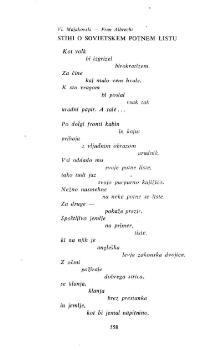 Vl. Majakovski — Fran Albrecht
STIHI O SOVJETSKEM POTNEM LISTU
Kot volk
bi izgrizel
birokratizem.
Za čine
kaj malo vem hvale.
K sto vragom
bi poslal
vsak tak
uradni papir. A tale . . .
Po dolgi fronti kabin
in kajut
prihaja
z vljudnim obrazom
uradnik.
Vsi oddado mu
svoje potne liste,
tako tudi jaz
svojo purpurno knjižico.
Nežno nasmehne
na neke potne se liste.
Za druge —
pokaže prezir.
Spoštljivo jemlje
na primer,
liste,
ki na njih je
angleška
levja zakonska dvojica.
Z očmi
požiraje
dobrega strica,
se klanja,
klanja
brez prestanka
in jemlje,
kot bi jemal napitnino.
158